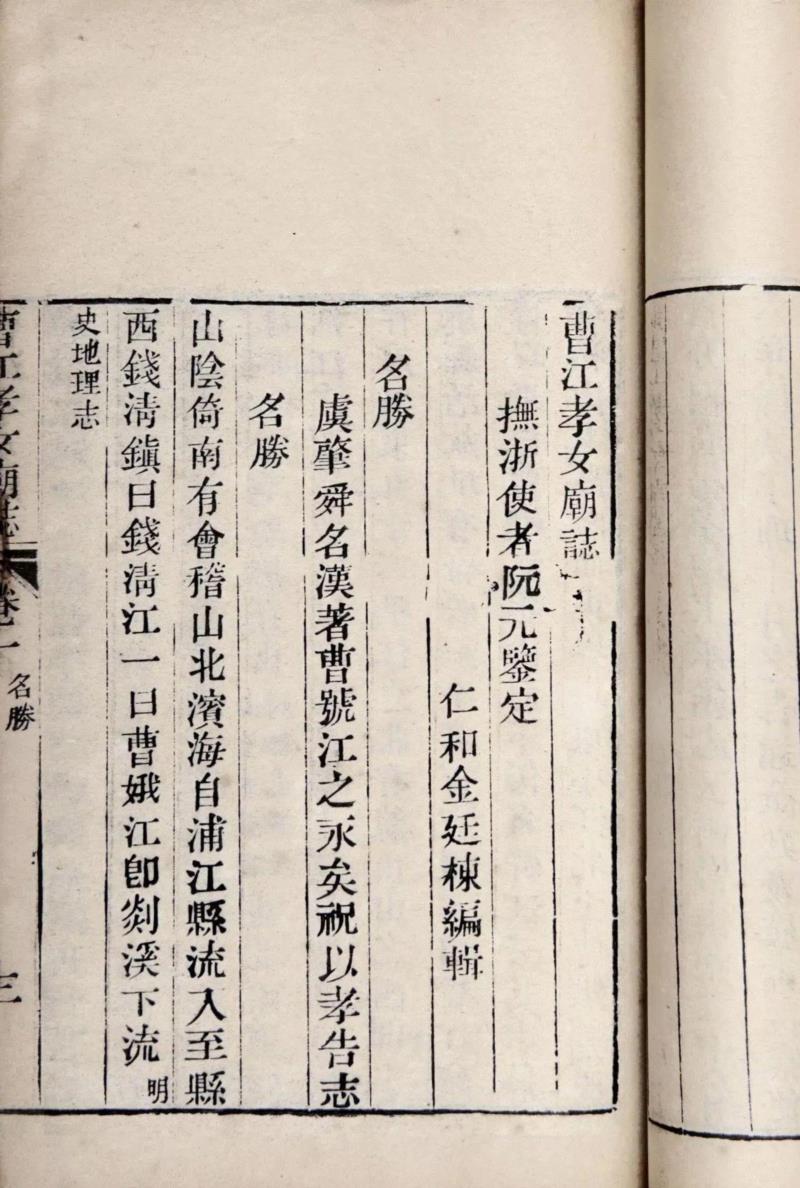 曹江孝女廟誌
撫浙使者阮元鑒定
仁和金廷棟編輯
名勝
虞肇舜名漢著曹號江之永矣祝以孝告志
名勝
山陰倚南有會稽山北濱海自浦江縣流入至縣
西錢淸鎭曰錢淸江一曰曹娥江卽剡溪下流明
史地理志
曹江孝女廟誌
名勝
三